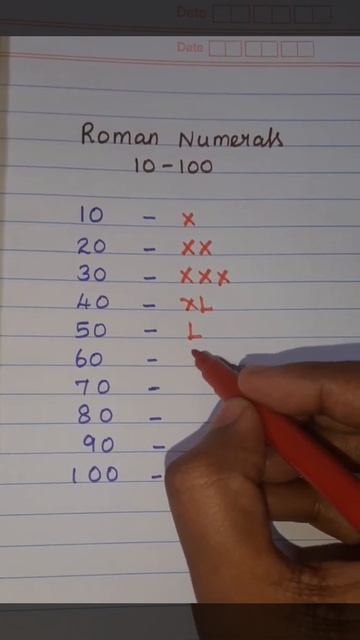 Date
Date
Roman Numerals
10 - 100
10 - X
20 - XX
30 - XXX
40 - XL
50 - L
60 -
70 -
80 -
90 -
100 -